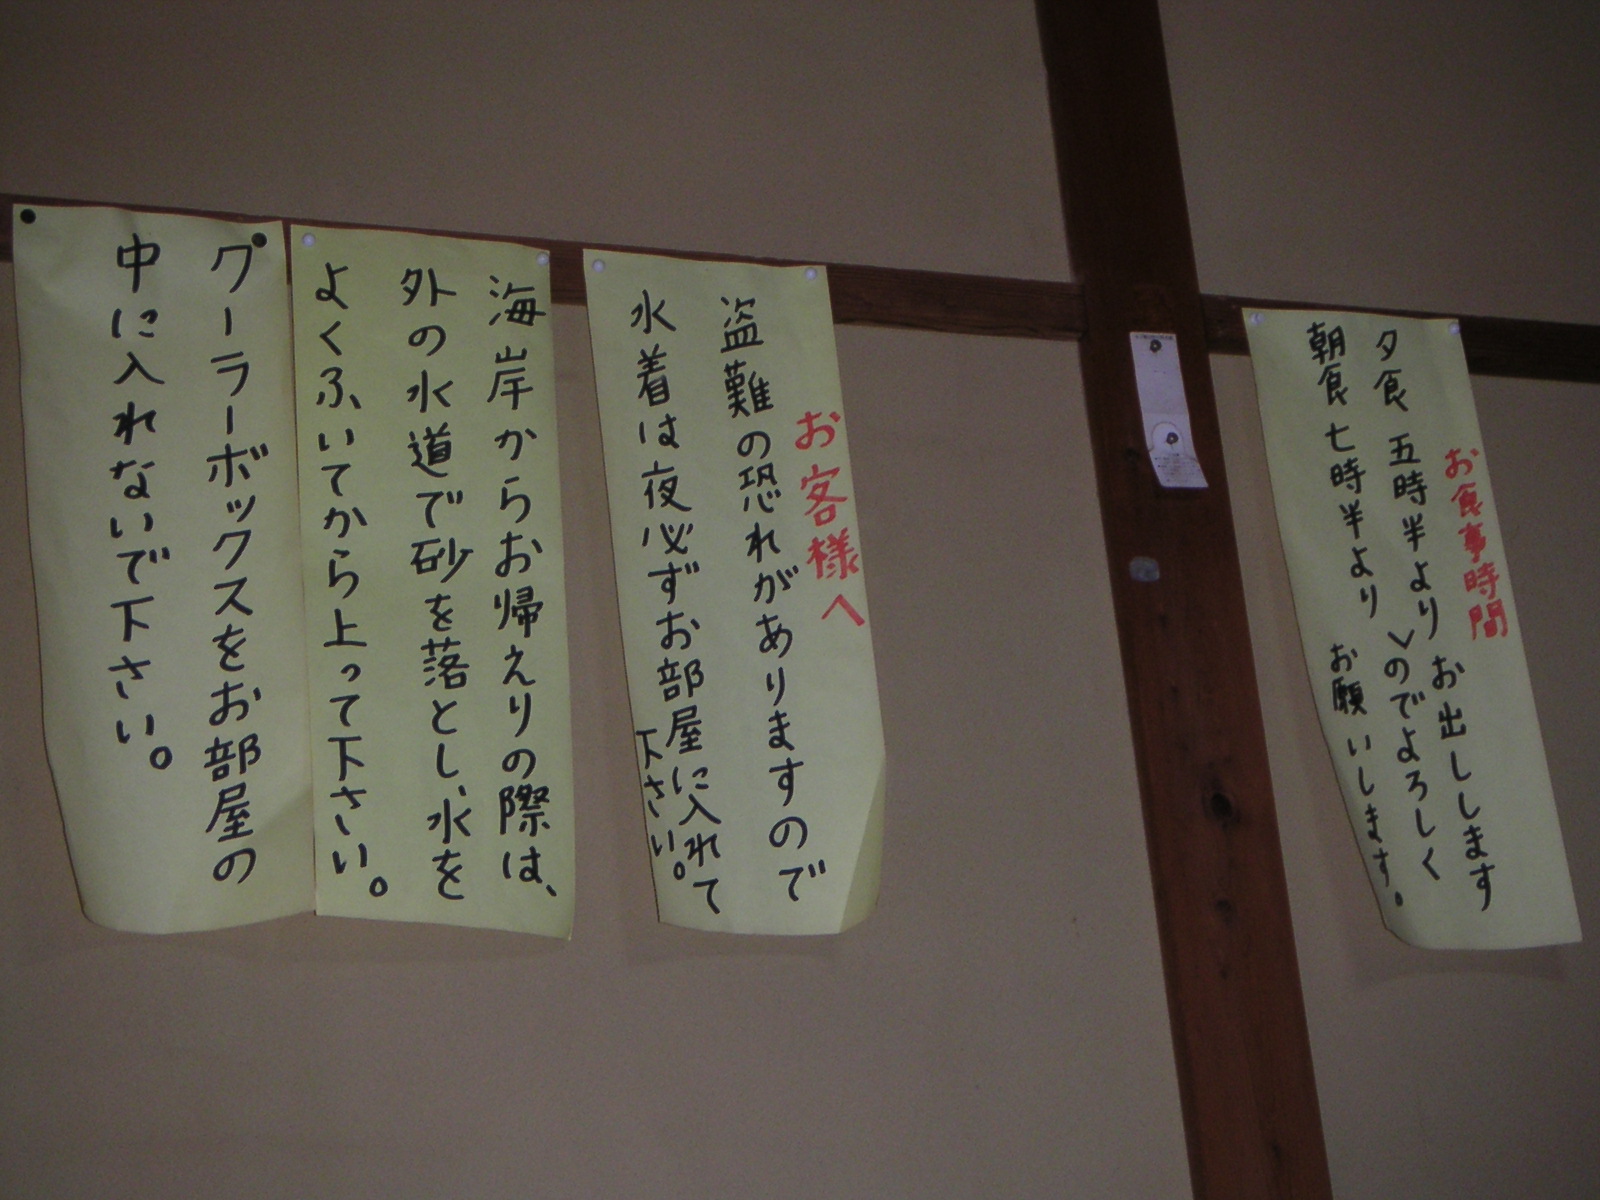 お食事時間
夕食 五時半より お出しします
朝食 七時半より のでよろしく
お願いします。
お客様へ
盗難の恐れがありますので
水着は夜必ずお部屋に入れて
下さい。
海岸からお帰えりの際は、
外の水道で砂を落とし、水を
よくふいてから上って下さい。
クーラーボックスをお部屋の
中に入れないで下さい。